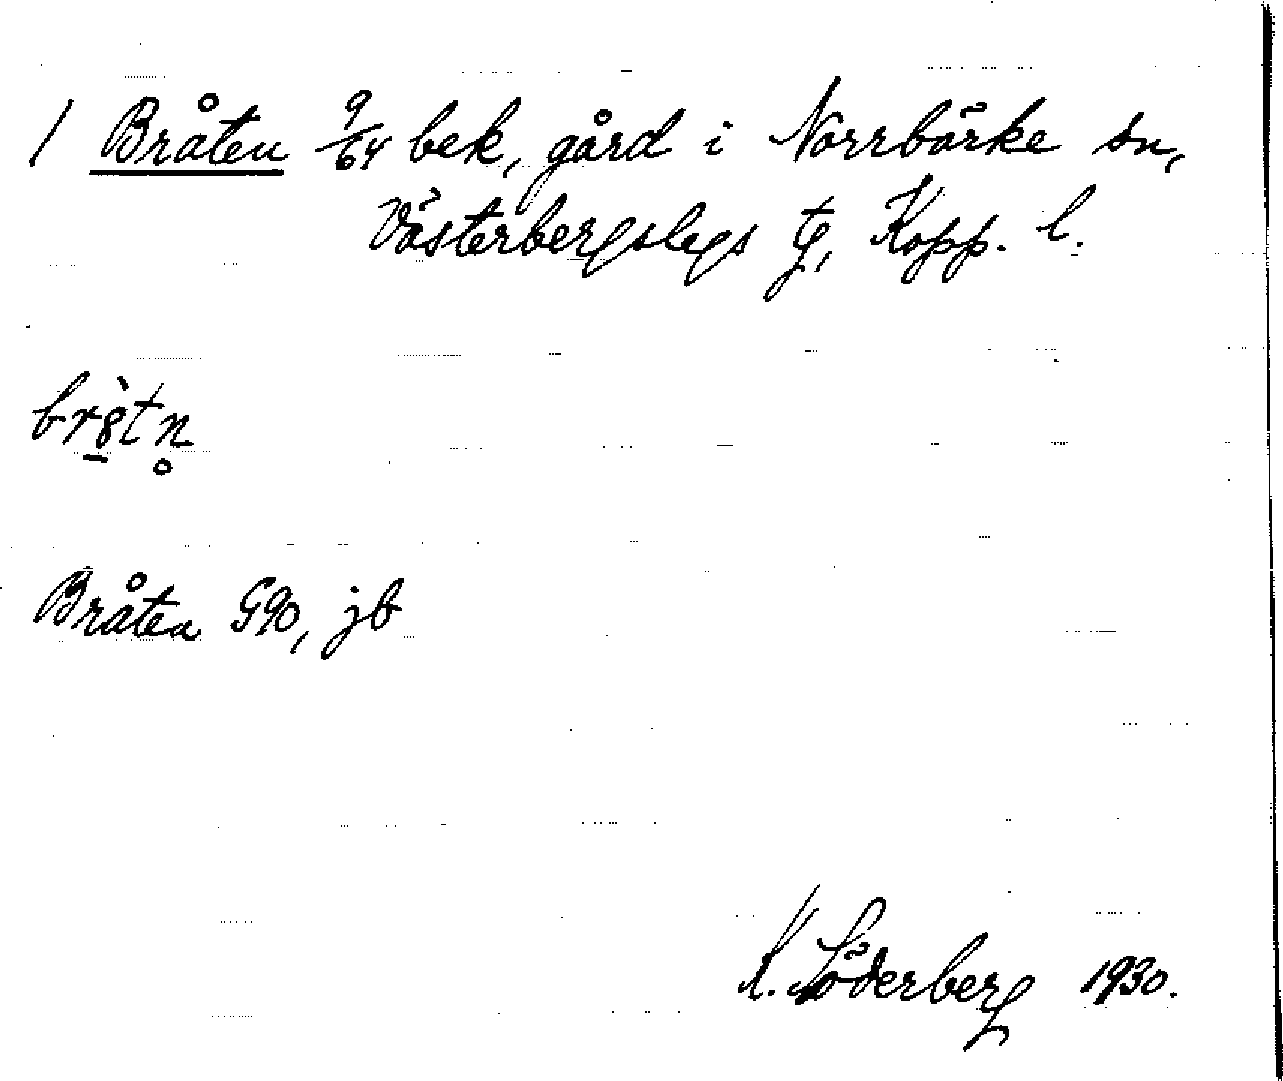 1 Bråten 9/64 bek, gård i Norrbärke sn,
Västerbergslags tg, Kopp. l.
Bråten G90, jb
K. Söderberg 1930.